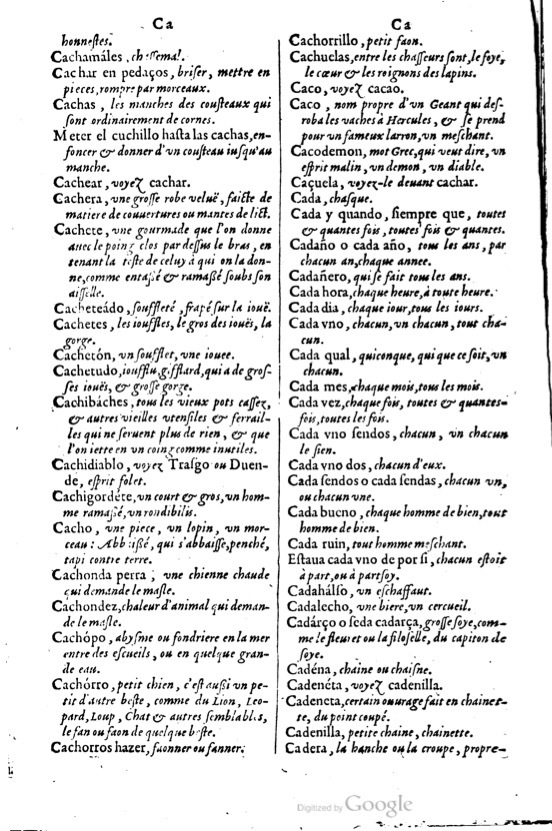 Ca
honnestes.
Cachamáles, chessemal.
Cachar en pedaços, briser, mettre en
pieces, rompre par morceaux.
Cachas, les manches des cousteaux qui
sont ordinairement de cornes.
Meter el cuchillo hasta las cachas, en-
foncer & donner d'vn cousteau iusqu'au
manche.
Cachear, voyez cachar.
Cachera, vne grosse robe veluë, faicte de
matiere de couuertures ou mantes de lict.
Cachete, vne gourmade que l'on donne
auec le poing clos par dessus le bras, en
tenant la teste de celuy à qui on la don-
ne, comme entassé & ramassé soubs son
aisselle.
Cacheteádo, souffleté, frapé sur la iouë.
Cachetes, les iouffles, le gros des iouës, la
gorge.
Cachetón, vn soufflet, vne iouee.
Cachetudo, iouflu, gifflard, qui a de gros-
ses iouës, & grosse gorge.
Cachibáches, tous les vieux pots cassez,
& autres vieilles vtensiles & ferrail-
les qui ne seruent plus de rien, & que
l'on iette en vn coing comme inutiles.
Cachidiablo, voyez Trasgo ou Duen-
de, esprit folet.
Cachigordéte, vn court & gros, vn hom-
me ramassé, vn rondibilis.
Cacho, vne piece, vn lopin, vn mor-
ceau: Abbaissé, qui s'abbaisse, penché,
tapi contre terre.
Cachonda perra; vne chienne chaude
qui demande le masle.
Cachondez, chaleur d'animal qui deman-
de le masle.
Cachópo, abysme ou fondriere en la mer
entre des escueils, ou en quelque gran-
de eau.
Cachórro, petit chien, c'est aussi vn pe-
tit d'autre beste, comme du Lion, Leo-
pard, Loup, Chat & autres semblables,
le fan ou faon de quelque beste.
Cachorros hazer, faonner ou fanner.
Ca
Cachorrillo, petit faon.
Cachuelas, entre les chasseurs sont, le foye,
le cœur & les roignons des lapins.
Caco, voyez cacao.
Caco, nom propre d'vn Geant qui des-
roba les vaches à Hercules, & se prend
pour vn fameux larron, vn meschant.
Cacodemon, mot Grec, qui veut dire, vn
esprit malin, vn demon, vn diable.
Caçuela, voyez-le deuant cachar.
Cada, chasque.
Cada y quando, siempre que, toutes
& quantes fois, toutes fois & quantes.
Cadaño o cada año, tous les ans, par
chacun an, chaque annee.
Cadañero, qui se fait tous les ans.
Cada hora, chaque heure, à toute heure.
Cada dia, chaque iour, tous les iours.
Cada vno, chacun, vn chacun, tout cha-
cun.
Cada qual, quiconque, qui que ce soit, vn
chacun.
Cada mes, chaque mois, tous les mois.
Cada vez, chaque fois, toutes & quantes-
fois, toutes les fois.
Cada vno sendos, chacun, vn chacun
le sien.
Cada vno dos, chacun d'eux.
Cada sendos o cada sendas, chacun vn,
ou chacun vne.
Cada bueno, chaque homme de bien, tout
homme de bien.
Cada ruin, tout homme meschant.
Estaua cada vno de por si, chacun estoit
à part, ou à part soy.
Cadahálso, vn eschaffaut.
Cadalecho, vne biere, vn cercueil.
Cadárço o seda cadarça, grosse soye, com-
me le fleuret ou la filoselle, du capiton de
soye.
Cadéna, chaine ou chaisne.
Cadenéta, voyez cadenilla.
Cadeneta, certain ouurage fait en chainet-
te, du point coupé.
Cadenilla, petite chaine, chainette.
Cadera, la hanche ou la croupe, propre-
Digitized by Google